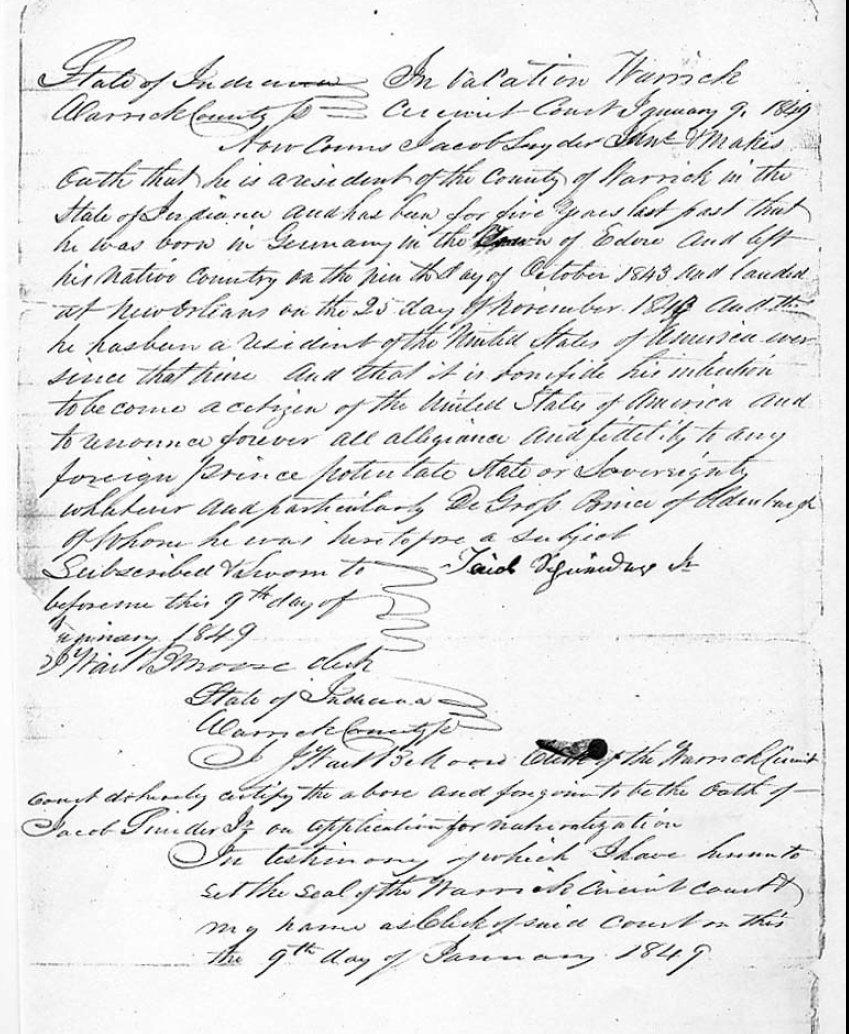 State of Indiana In Vacation Warrick
Warrick County Circuit Court January 9. 1849
Now Comes Jacob Snyder & Makes
Oath that he is a resident of the County of Warrick in the
State of Indiana and has been for five years last past that
he was born in Germany in the Town of and left
his Native Country on the ninth day of October 1843 and landed
at New Orleans on the 25 day of November 1843 and
he has been a resident of the United States of America ever
since that time and that it is bonifide his intention
to become a citizen of the United States of America and
to renounce forever all allegiance and fidelity to any
foreign Prince potentate State or Sovereignty
whatever and particularly De Gross Prince of Oldenburgh
of whom he was heretofore a subject
Subscribed & Sworn to
before me this 9th day of
January 1849
Wait B Moore clerk
State of Indiana
Warrick County
I J Wait B Moore Clerk of the Warrick Circuit
Court do hereby certify the above and foregoin to be the Oath of
Jacob on application for naturalization
In testimony of which I have hereunto
set the seal of the Warrick Circuit court &
my name as Clerk of said Court on this
the 9th day of January 1849